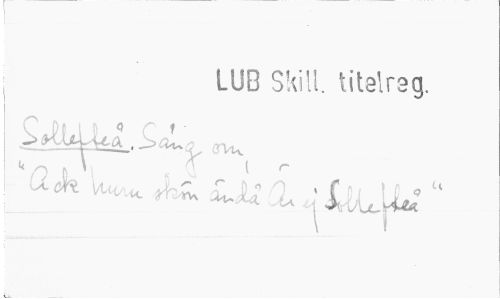 LUB Skill. titelreg.
Sollefteå. Sång om,
"Ack huru skön ändå Är ej Sollefteå"